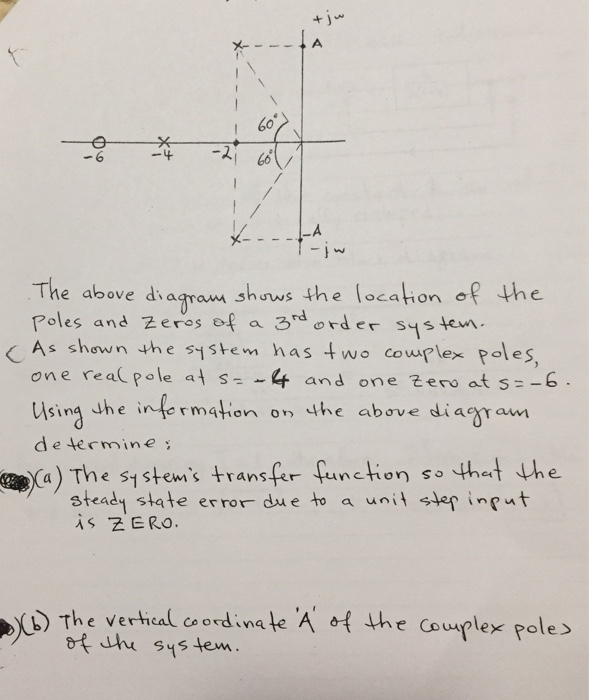 +jw
A
60°
-6
-4
-2
60°
-A
-jw
The above diagram shows the location of the
Poles and Zeros of a 3rd order system.
As shown the system has two complex poles,
one real pole at s= -4 and one Zero at s=-6.
Using the information on the above diagram
determine:
(a) The system's transfer function so that the
steady state error due to a unit step input
is ZERO.
(b) The vertical coordinate 'A' of the complex poles
of the system.